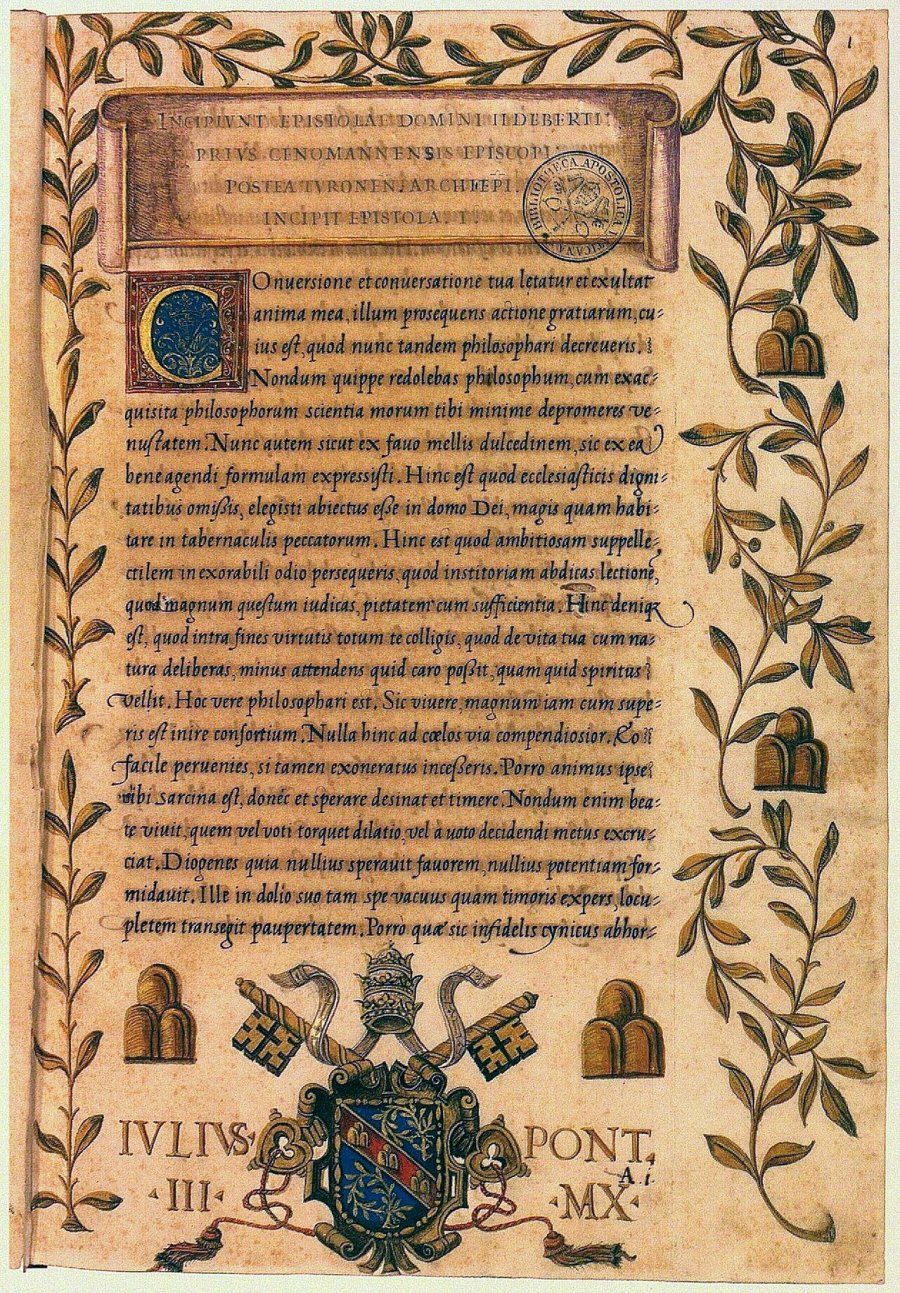 1
INCIPIVNT EPISTOLAE DOMINI ILDEBERTI
PRIVS CENOMANNENSIS EPISCOPI
POSTEA TVRONEN. ARCHIEPI.
INCIPIT EPISTOLA. I
BIBLIOTHECA APOSTOLICA VATICANA
COnuersione et conuersatione tua lętatur et exultat
anima mea, illum prosequens actione gratiarum, cu-
ius est, quod nunc tandem philosophari decreueris.
Nondum quippe redolebas philosophum, cum exac-
quisita philosophorum scientia morum tibi minime depromeres ve-
nustatem. Nunc autem sicut ex fauo mellis dulcedinem, sic ex ea
bene agendi formulam expressisti. Hinc est quod ecclesiasticis digni-
tatibus omissis, elegisti abiectus esse in domo Dei, magis quam habi-
tare in tabernaculis peccatorum. Hinc est quod ambitiosam suppelle-
ctilem inexorabili odio persequeris, quod institoriam abdicas lectione,
quod magnum questum iudicas, pietatem cum sufficientia. Hinc deniq
est, quod intra fines virtutis totum te colligis, quod de vita tua cum na-
tura deliberas, minus attendens quid caro possit, quam quid spiritus
vellit. Hoc vere philosophari est. Sic viuere, magnum iam cum supe-
ris est inire consortium. Nulla hinc ad cœlos via compendiosior. Eo
facile peruenies, si tamen exoneratus incesseris. Porro animus ipse
sibi sarcina est, donéc et sperare desinat et timere. Nondum enim bea-
te viuit, quem vel voti torquet dilatio, vel a uoto decidendi metus excru-
ciat. Diogenes quia nullius sperauit fauorem, nullius potentiam for-
midauit. Ille in dolio suo tam spe vacuus quam timoris expers, locu-
pletem transegit paupertatem. Porrò quæ sic infidelis cynicus abhor-
IVLIVS PONT.
III MX A. i.